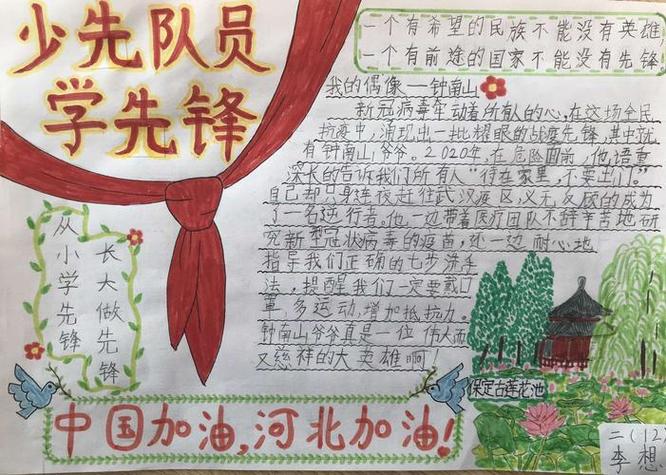 少先队员
学先锋
一个有希望的民族不能没有英雄
一个有前途的国家不能没有先锋。
我的偶像——钟南山
新冠病毒牵动着所有人的心,在这场全民
抗疫中,涌现出一批耀眼的战疫先锋,其中就
有钟南山爷爷。2020年,在危险面前,他语重
深长的告诉我们所有人“待在家里,不要出门。”
自己却只身连夜赶往武汉疫区,义无反顾的成为
了一名逆行者。他一边带着医疗团队不辞辛苦地研
究新型冠状病毒的疫苗,还一边耐心地
指导我们正确的七步洗手
法,提醒我们一定要戴口
罩,多运动,增加抵抗力。
钟南山爷爷真是一位伟大而
又慈祥的大英雄啊!
从小学先锋
长大做先锋
保定古莲花池
中国加油,河北加油!
二(12)
李想